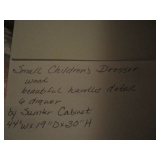 Small Children's Dresser
wood
beautiful handles
6 drawer
by Cabinet
44"W x 19"D x 30"H